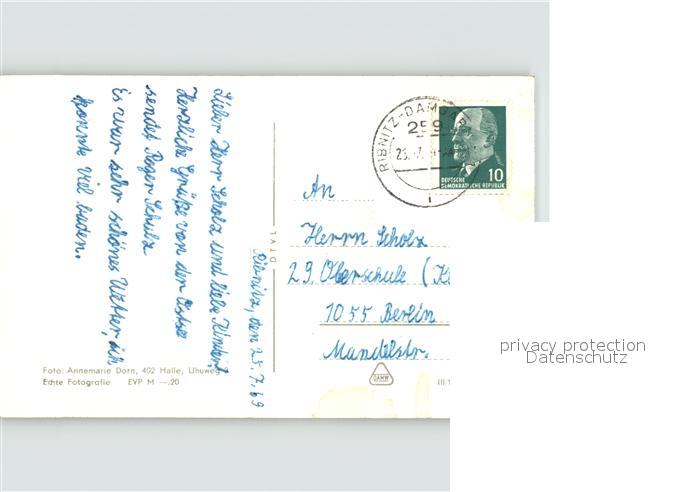 Lieber Herr Scholz und liebe Kinder!
Herzliche Grüße von der Ostsee
sendet Roger Schulz
Es war sehr schönes Wetter, ich
konnte viel baden.
Ribnitz, den 25.7.69
Foto: Annemarie Dorn, 402 Halle, Uhuweg
Echte Fotografie EVP M —.20
RIBNITZ-DAMG
259
DEUTSCHE
DEMOKRATISCHE REPUBLIK
10
An
Herrn Scholz
29. Oberschule
1055 Berlin
Mandelstr.
III/1
privacy protection
Datenschutz